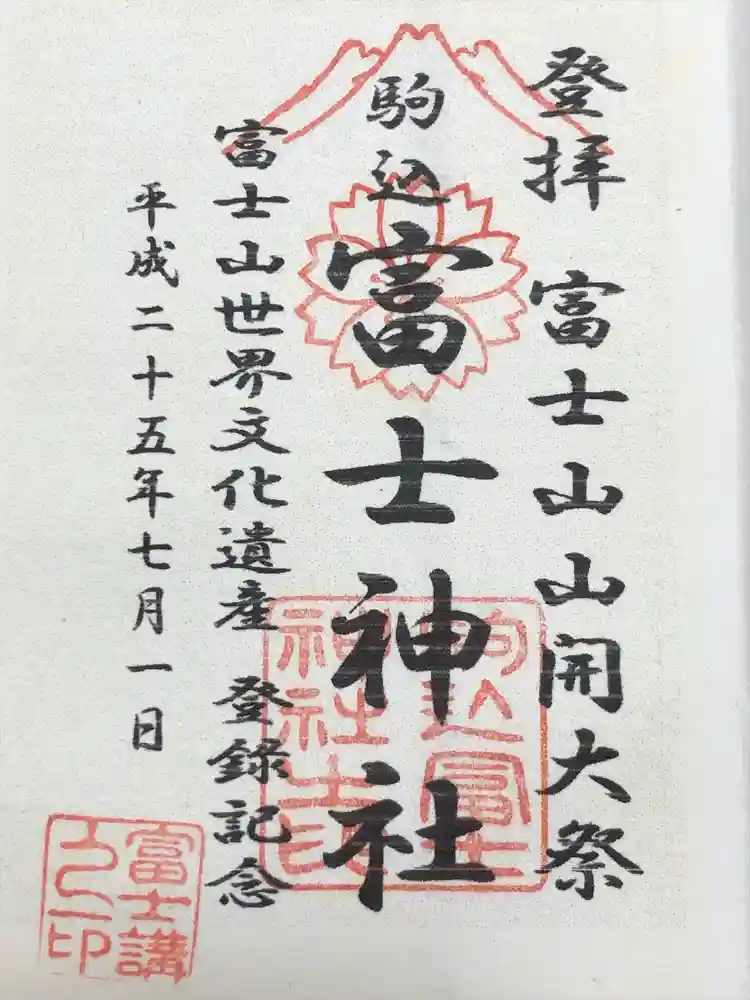 登拝 富士山山開大祭
駒込富士神社
富士山世界文化遺産 登録記念
平成二十五年七月一日
駒込富士
神社之印
富士講
之印